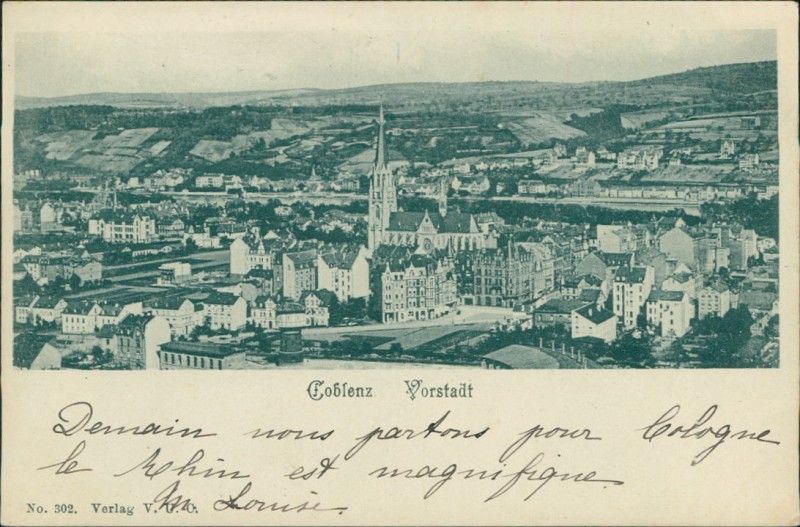 Coblenz. Vorstadt
Demain nous partons pour Cologne
le Rhin est magnifique.
Louise.
No. 302. Verlag V.